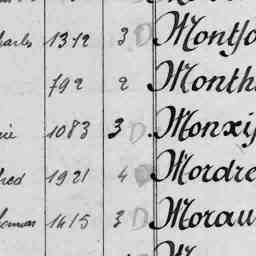 harles 1372 3 D Montfo
792 2 Month
rie 1083 3 D. Monxi
red 1921 4 Mordre
1415 3 D Morau